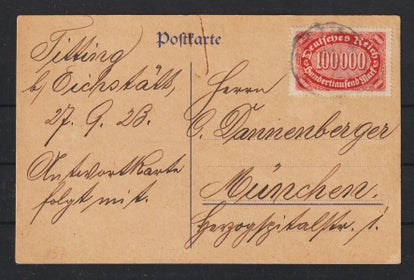 Postkarte
Titting
b/ Eichstätt,
27. 9. 23.
Antwortkarte
folgt mit.
Deutsches Reich
100000
Hunderttausend Mark
Herrn
C. Dannenberger
München.
Herzogspitalstr. 1.